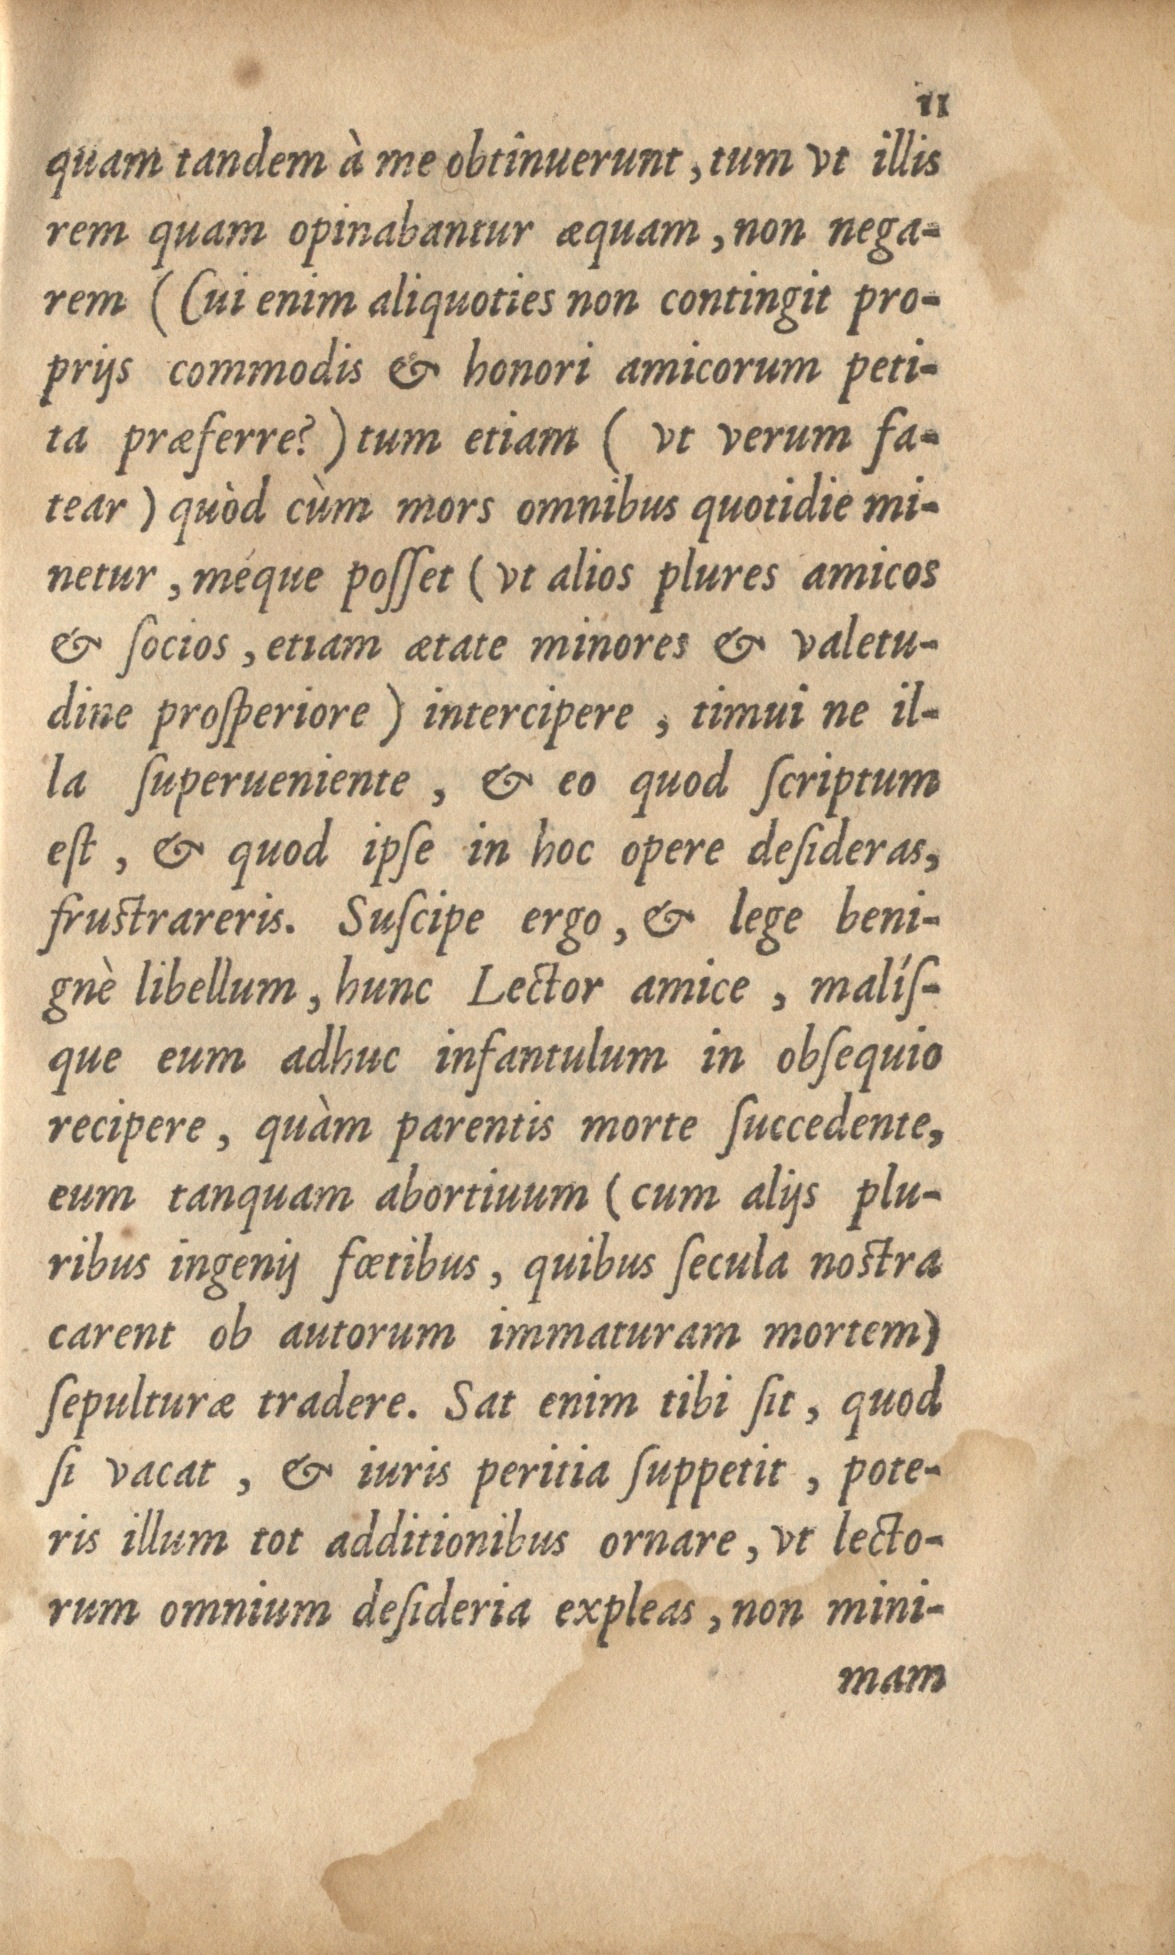 11
quam tandem à me obtinuerunt, tum vt illis
rem quam opinabantur æquam, non nega-
rem (Cui enim aliquoties non contingit pro-
prijs commodis & honori amicorum peti-
ta præferre?) tum etiam ( vt verum fa-
tear ) quòd cùm mors omnibus quotidie mi-
netur, méque poſſet (vt alios plures amicos
& ſocios, etiam ætate minores & valetu-
dine proſperiore ) intercipere, timui ne il-
la ſuperueniente, & eo quod ſcriptum
eſt, & quod ipſe in hoc opere deſideras,
fruſtrareris. Suſcipe ergo, & lege beni-
gnè libellum, hunc Lector amice, malíſ-
que eum adhuc infantulum in obſequio
recipere, quàm parentis morte ſuccedente,
eum tanquam abortiuum (cum alijs plu-
ribus ingenij fœtibus, quibus ſecula noſtra
carent ob autorum immaturam mortem)
ſepulturæ tradere. Sat enim tibi ſit, quod
ſi vacat, & iuris peritia ſuppetit, pote-
ris illum tot additionibus ornare, vt lecto-
rum omnium deſideria expleas, non mini-
mam